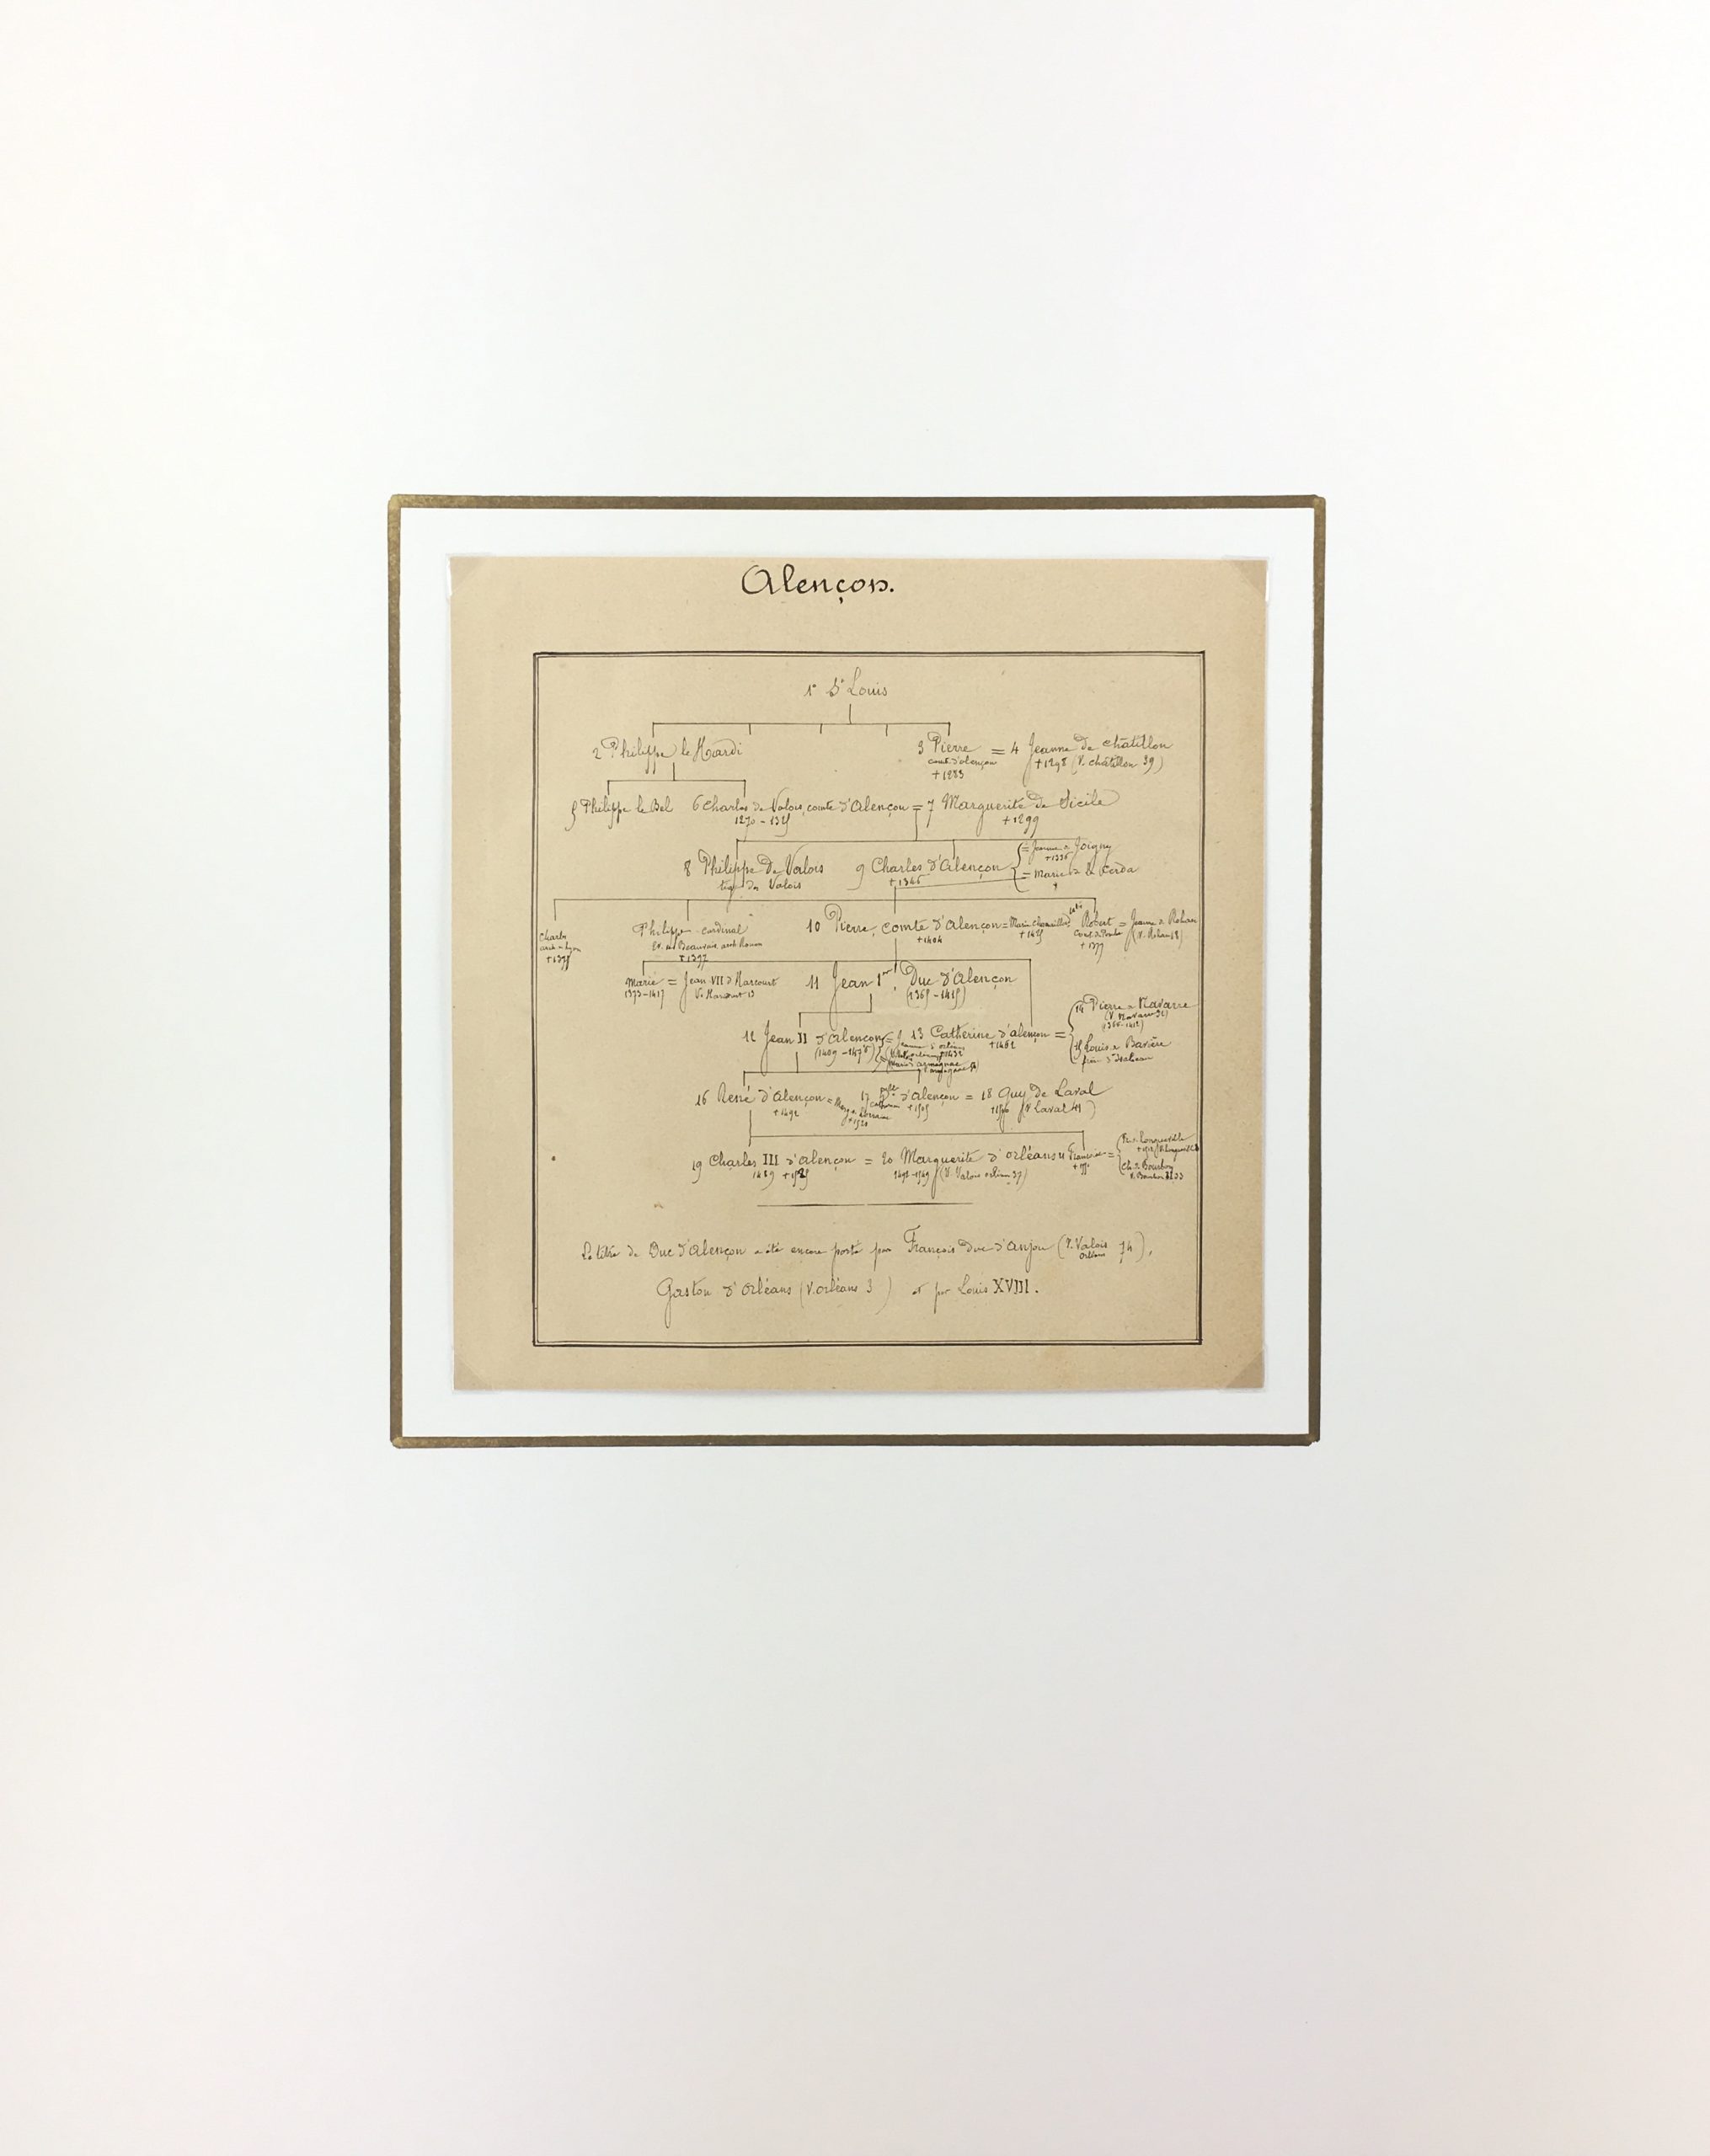 Alençon.
1° St Louis
2 Philippe le Hardi 3 Pierre = 4 Jeanne de chatillon
comte d'alençon +1298 (V. châtillon 39)
+1283
5 Philippe le Bel 6 Charles de Valois, comte d'Alençon = 7 Marguerite de Sicile
1270-1325 +1299
8 Philippe de Valois 9 Charles d'Alençon = Jeanne de Joigny
+1336
tige des Valois +1346 = Marie de la Cerda
Charles Philippe cardinal 10 Pierre, comte d'Alençon = Marie Chamaillard Robert = Jeanne de Rohan
arch de Lyon Ev. de Beauvais, arch Rouen +1404 +1425 Comte du Perche (V. Rohan 18)
+1375 +1397 +1377
Marie = Jean VII d'Harcourt 11 Jean 1er, Duc d'Alençon
1373-1417 V. Harcourt 13 (1385-1415)
14 Pierre de Navarre
(1366-1412)
12 Jean II d'alençon = 13 Catherine d'alençon =
(1409-1476) Jeanne d'orléans +1432 +1462
15 Louis de Bavière
Marie d'armagnac frère d'Isabeau
16 René d'Alençon = Marg de Lorraine 17 Catherine d'alençon = 18 Guy de Laval
+1492 +1521 +1505 (V Laval 41)
19 Charles III d'alençon = 20 Marguerite d'orléans 21 Françoise =
1489 +1525 1492-1549 (V. Valois orléans 37) +1550
de Longueville
Ch. de Bourbon
V. Bourbon 33
Le titre de Duc d'Alençon a été encore porté par François Duc d'Anjou (V. Valois orléans 74),
Gaston d'Orléans (V. orléans 3) et par Louis XVIII.